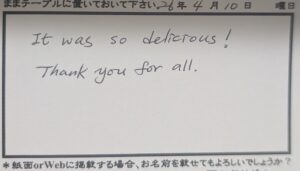 ままテーブルに置いておいて下さい。26年4月10日 曜日
It was so delicious!
Thank you for all.
*紙面orWebに掲載する場合、お名前を載せてもよろしいでしょうか?